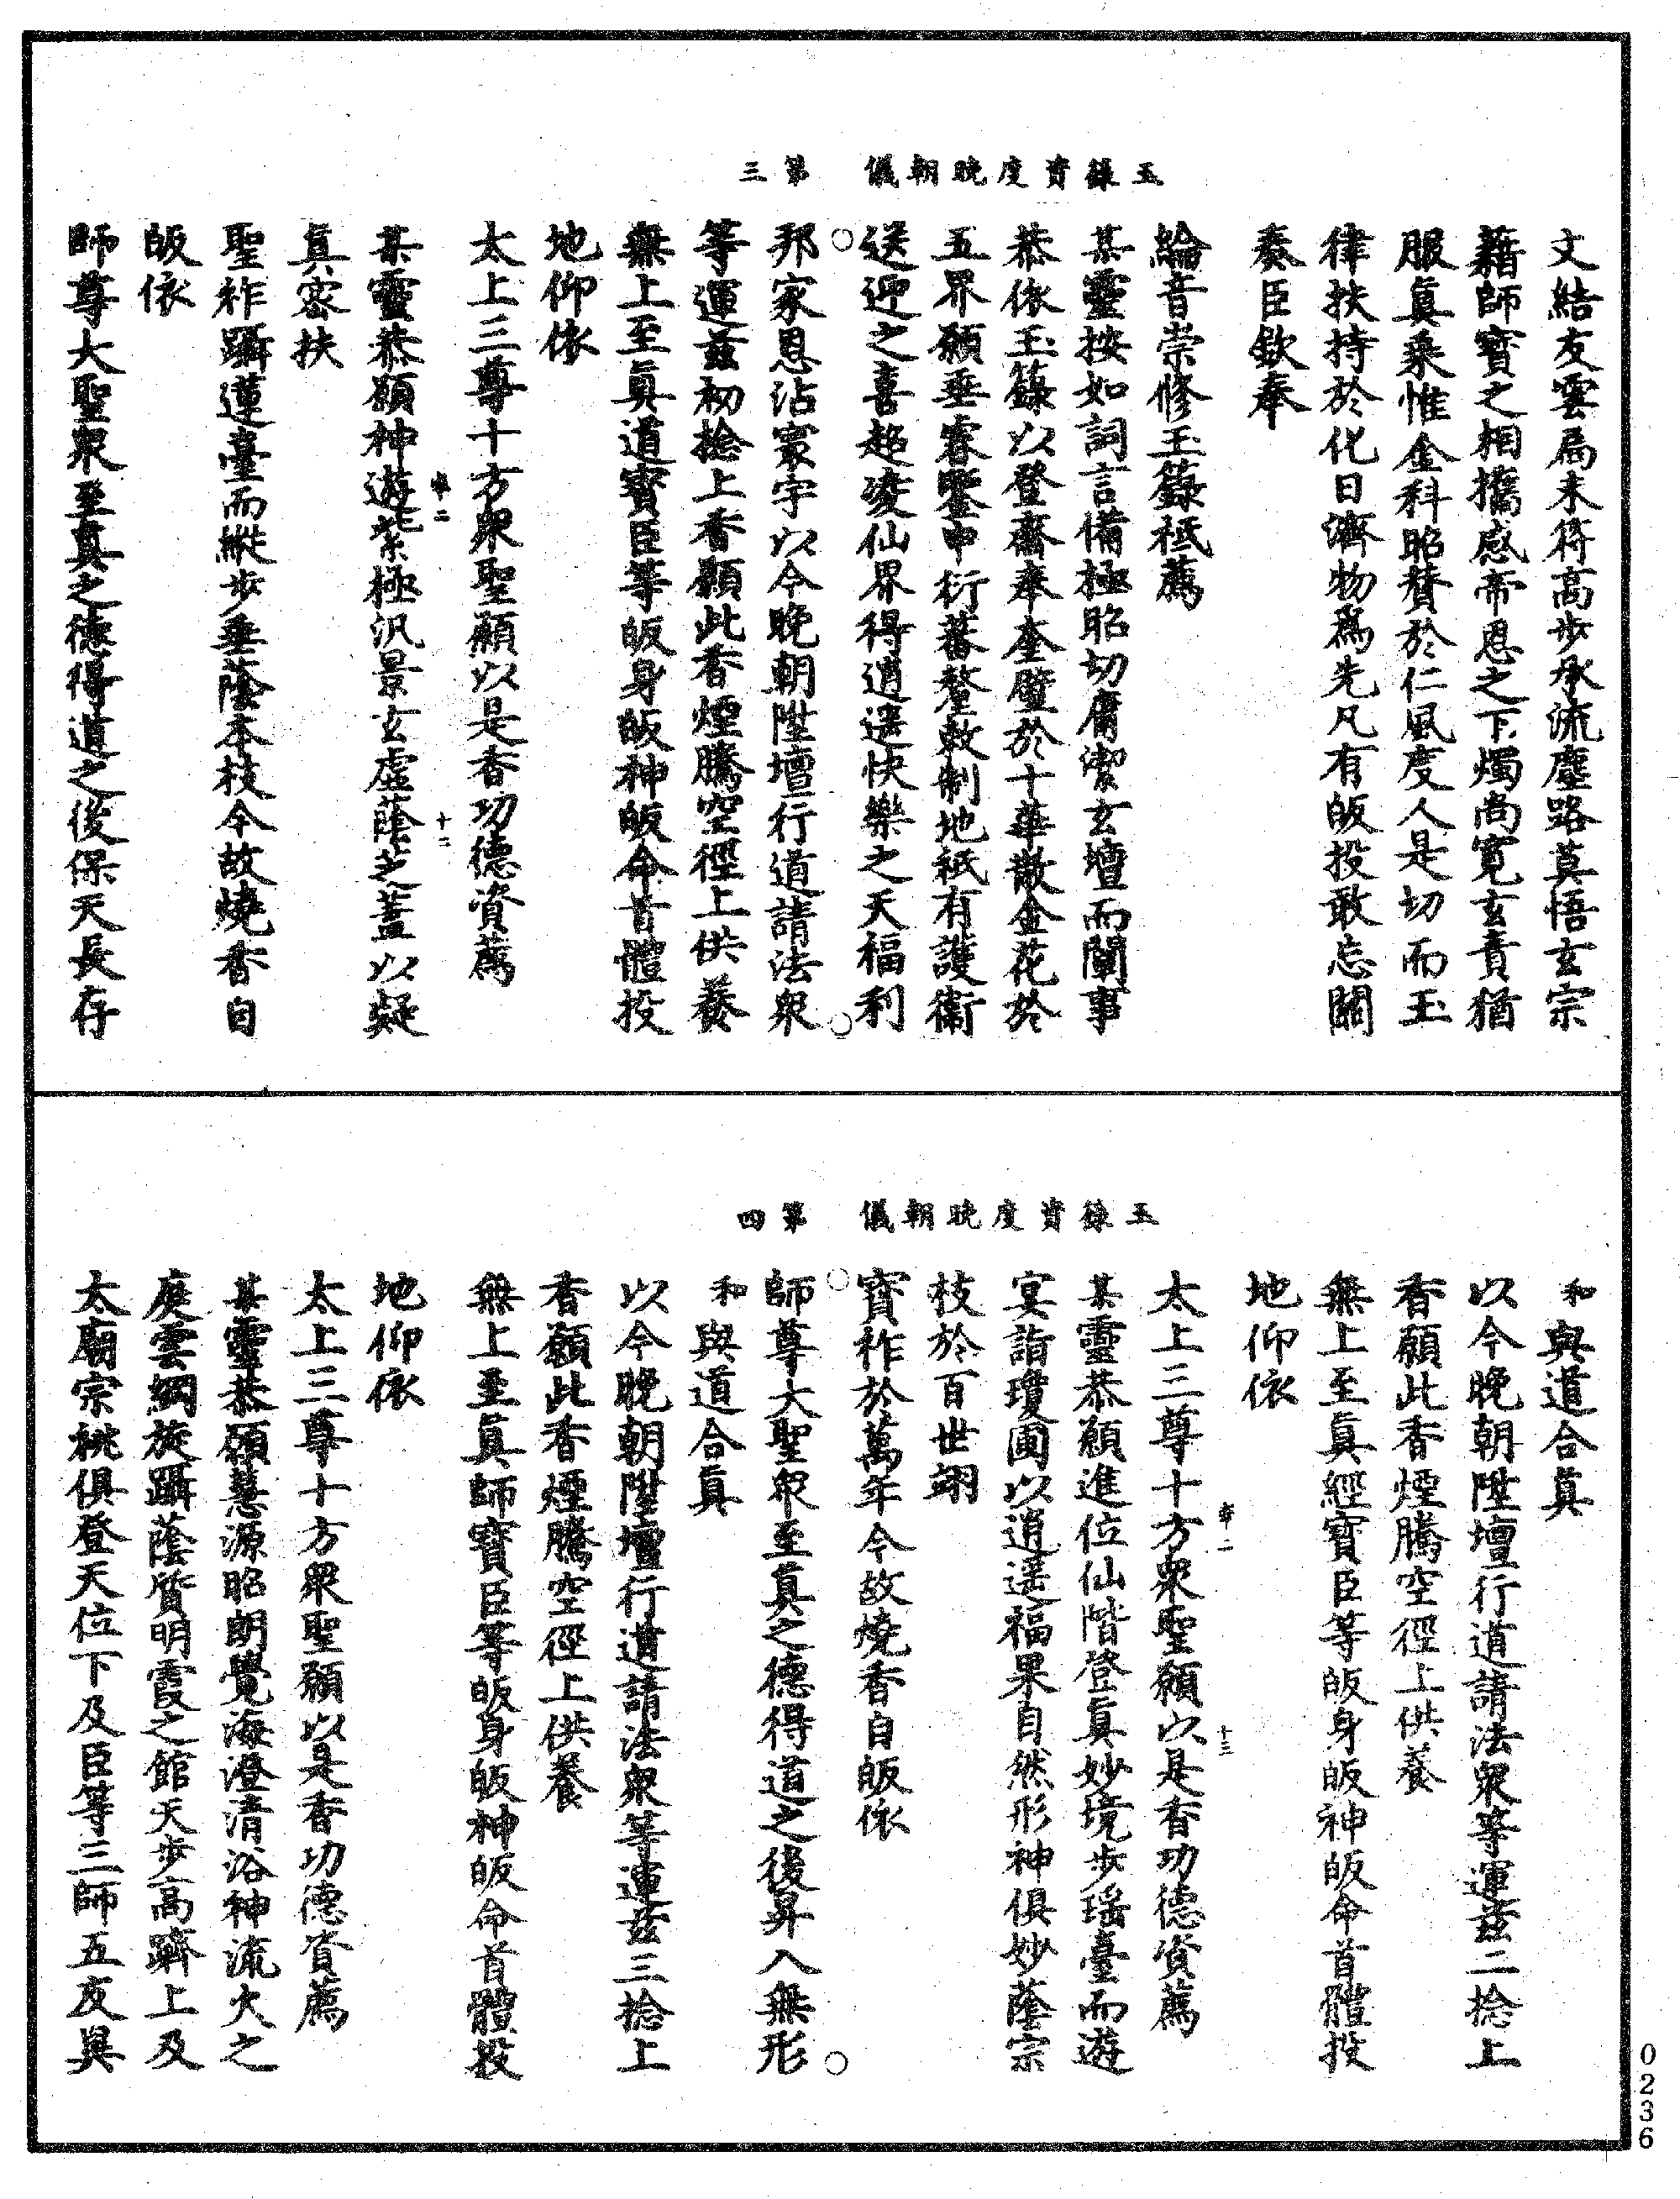 玉籙資度晚朝儀　第三
文結友雲爲未符高步承流塵路莫悟玄宗
藉師寶之相撝感帝恩之下燭尚寬玄責猶
服真乘惟金科昭贊於仁風度人是切而玉
律扶持於化日濟物爲先凡有皈投敢忘關
奏臣欽奉
綸音崇修玉籙祗薦
某靈按如詞言備極昭切庸潔玄壇而闡事
恭依玉籙以登齋奉奎璧於十華散金花於
五界願垂睿鑒申衍蕃釐敕制地祇有護衛
送迎之喜超凌仙界得逍遥快樂之天福利
邦家恩沾寰宇以今晚朝陞壇行道請法衆
等運茲初捻上香願此香煙騰空徑上供養
無上至真道寶臣等皈身皈神皈命首體投
地仰依
太上三尊十方衆聖願以是香功德資薦
某靈恭願神遊紫極汎景玄虛蔭芝蓋以凝
真密扶
聖祚躡蓮臺而縱步垂蔭本枝今故燒香自
皈依
師尊大聖衆至真之德得道之後保天長存
玉籙資度晚朝儀　第四
和與道合真
以今晚朝陞壇行道請法衆等運茲二捻上
香願此香煙騰空徑上供養
無上至真經寶臣等皈身皈神皈命首體投
地仰依
太上三尊十方衆聖願以是香功德資薦
某靈恭願進位仙階登真妙境步瑶臺而遊
宴詣瓊圃以逍遥福果自然形神俱妙蔭宗
枝於百世翊
寶祚於萬年今故燒香自皈依
師尊大聖衆至真之德得道之後昇入無形
和與道合真
以今晚朝陞壇行道請法衆等運茲三捻上
香願此香煙騰空徑上供養
無上至真師寶臣等皈身皈神皈命首體投
地仰依
太上三尊十方衆聖願以是香功德資薦
某靈恭願慧源昭朗覺海澄清浴神流火之
庭雲綱旋躡蔭質明霞之館天步高躋上及
太廟宗祧俱登天位下及臣等三師五友與
0236